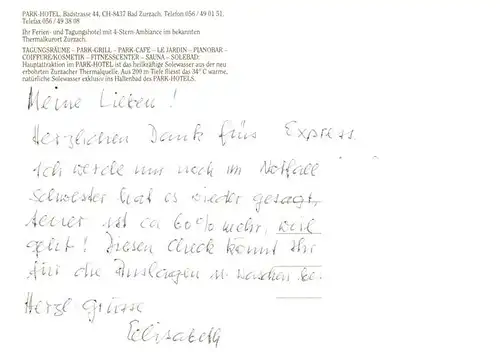 PARK-HOTEL, Badstrasse 44, CH-8437 Bad Zurzach, Telefon 056 / 49 01 51,
Telefax 056 / 49 38 08
Ihr Ferien- und Tagungshotel mit 4-Stern-Ambiance im bekannten
Thermalkurort Zurzach.
TAGUNGSRÄUME – PARK-GRILL – PARK-CAFE – LE JARDIN – PIANOBAR –
COIFFEUR/KOSMETIK – FITNESSCENTER – SAUNA – SOLEBAD:
Hauptattraktion im PARK-HOTEL ist das heilkräftige Solewasser aus der neu
erbohrten Zurzacher Thermalquelle. Aus 200 m Tiefe fliesst das 34° C warme,
natürliche Solewasser exklusiv ins Hallenbad des PARK-HOTELS.
Meine Lieben!
Herzlichen Dank fürs Express.
Ich werde nur noch im Notfall
Schwester hat es wieder gesagt,
teurer ist ca 60% mehr, weil
geht! Diesen Check könnt Ihr
für die Auslagen u waschen
Herzl Grüsse
Elisabeth